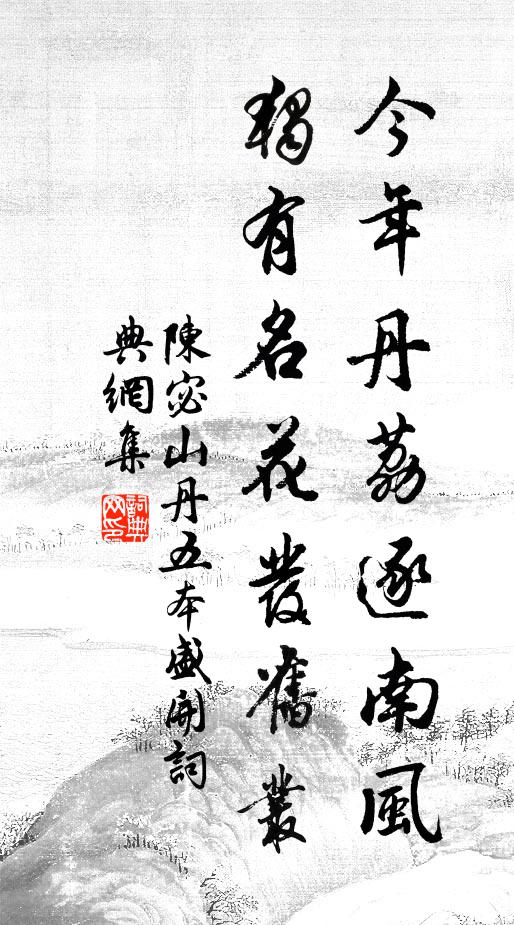 今年丹荔逐南風
獨有名花發舊叢
陳宓山丹五本盛開詞
典網集
詞典網印